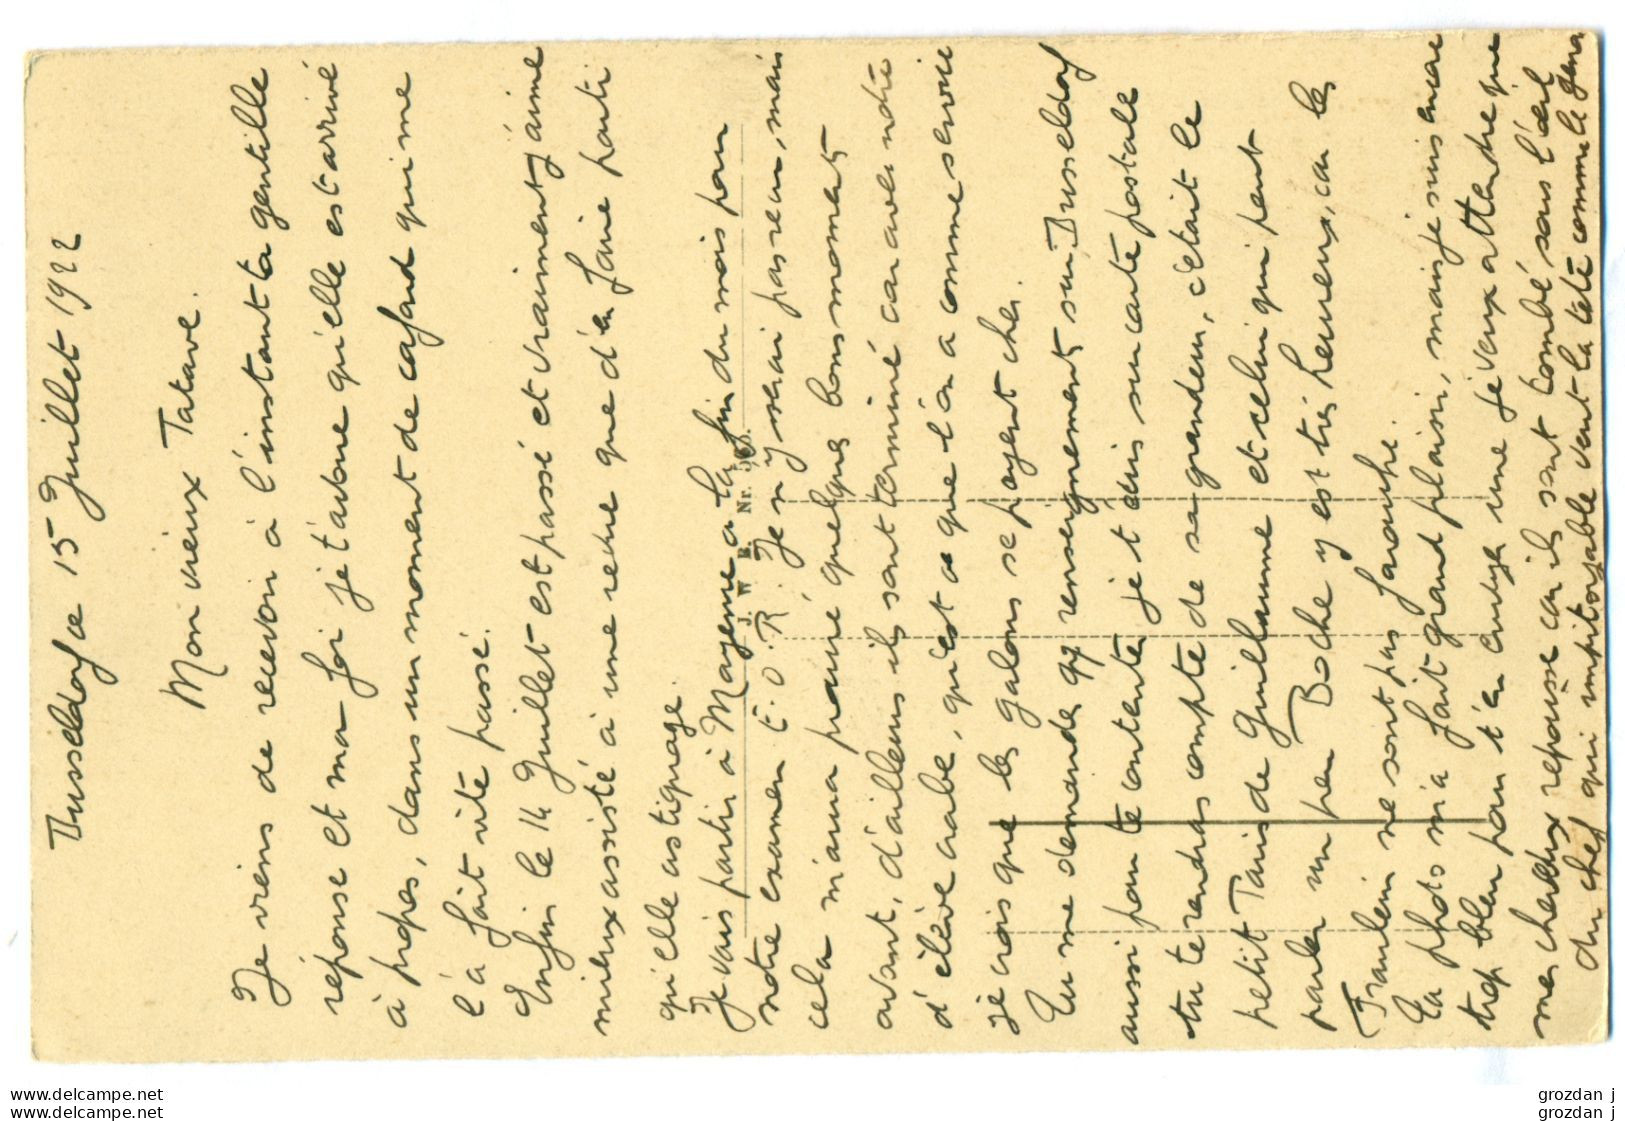 Dusseldorf ce 15 Juillet 1922
Mon vieux Tatave.
Je viens de recevoir à l'instant ta gentille
réponse et ma foi je t'avoue qu'elle est arrivé
à propos, dans un moment de cafard qui me
l'a fait vite passé.
Enfin le 14 Juillet est passé et vraiment j'aime
mieux assisté à une redue que d'en faire parti
qu'elle astiquage.
Je vais partir à Mayence à la fin du mois pour
notre examen E.O.R. Je n'y serai pas reçu, mais
cela m'aura procuré quelques bons moments
avant, d'ailleurs ils sont terminé car avec notre
d'élève crabe, qu'est ce que l'on a comme service
je crois que les galons se payent cher.
Tu me demandes qq renseignements sur Dusseldorf
aussi pour te contenter je t'écris sur carte postale
tu te rendras compte de sa grandeur, c'était le
petit Paris de Guillaume et celui qui peut
parler un peu Boche y est très heureux, car les
Fraulein ne sont pas farouche.
Ta photo m'a fait grand plaisir, mais je suis encore
trop bleu pour t'en envoyer une je veux attendre que
mes cheveux repousse car ils sont tombé sous l'œil
du chef qui impitoyable veut la tête comme le genou
J. W. B. Nr.
grozdan j
grozdan j